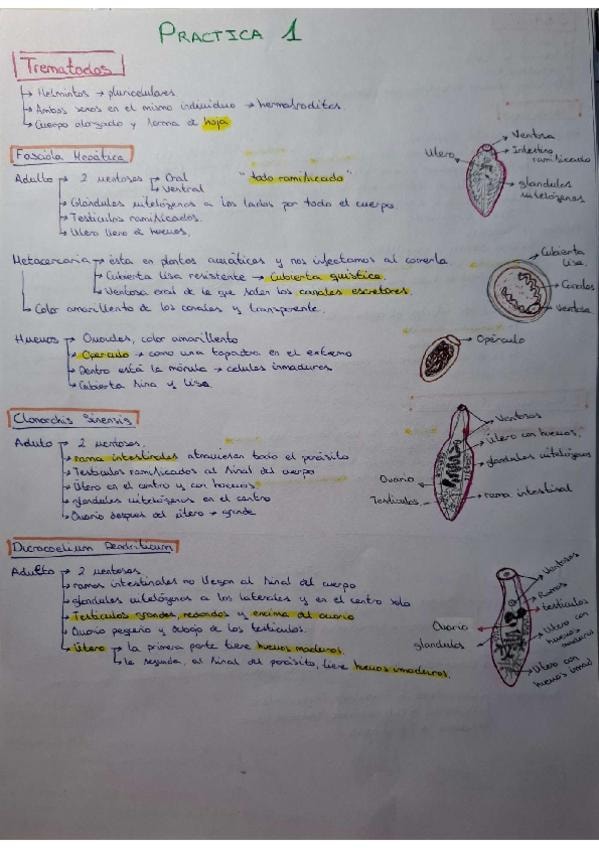 PRACTICA 1
Trematodos
→ Helmintos → pluricelulares
→ Ambos sexos en el mismo individuo → hermafroditas.
→ Cuerpo alargado y forma de hoja
Fasciola Hepática
Adulto → 2 ventosas → Oral
→ Ventral
"todo ramificado"
→ Glándulas vitelógenas a los lados por todo el cuerpo
→ Testículos ramificados.
→ Utero lleno de huevos.
Utero
Ventosa
Intestino ramificado
glandulas vitelógenas
Metacercaria → esta en plantas acuáticas y nos infectamos al comerla
→ Cubierta lisa resistente → Cubierta quística.
→ Ventosa oral de la que salen los canales escretores.
→ Color amarillento de los canales y transparente.
Cubierta lisa.
Canales
Ventosa
Huevos → Ovoides, color amarillento
→ Operculo → como una tapadera en el extremo
→ Dentro está la mórula → celulas inmaduras
→ Cubierta fina y lisa.
Opérculo
Clonorchis Sinensis
Adulto → 2 ventosas.
→ rama intestinales atraviesan todo el parásito
→ Testículos ramificados al final del cuerpo
→ Utero en el centro y con huevos
→ glandulas vitelógenas en el centro
→ Ovario despues del útero → grande
Ventosas
Útero con huevos.
glandulas vitelógenas
Ovario
Testículos
rama intestinal
Dicrocoelium Dendriticum
Adulto → 2 ventosas.
→ ramas intestinales no llegan al final del cuerpo
→ glandulas vitelógenas a los laterales y en el centro solo
→ Testículos grandes, redondos y encima del ovario
→ Ovario pequeño y debajo de los testículos.
→ Útero → la primera parte tiene huevos maduros.
→ la segunda, al final del parásito, tiene huevos imaduros.
Ventosas
Ramas
testículos
Utero con huevos maduros
Utero con huevos imad
Ovario
glandulas